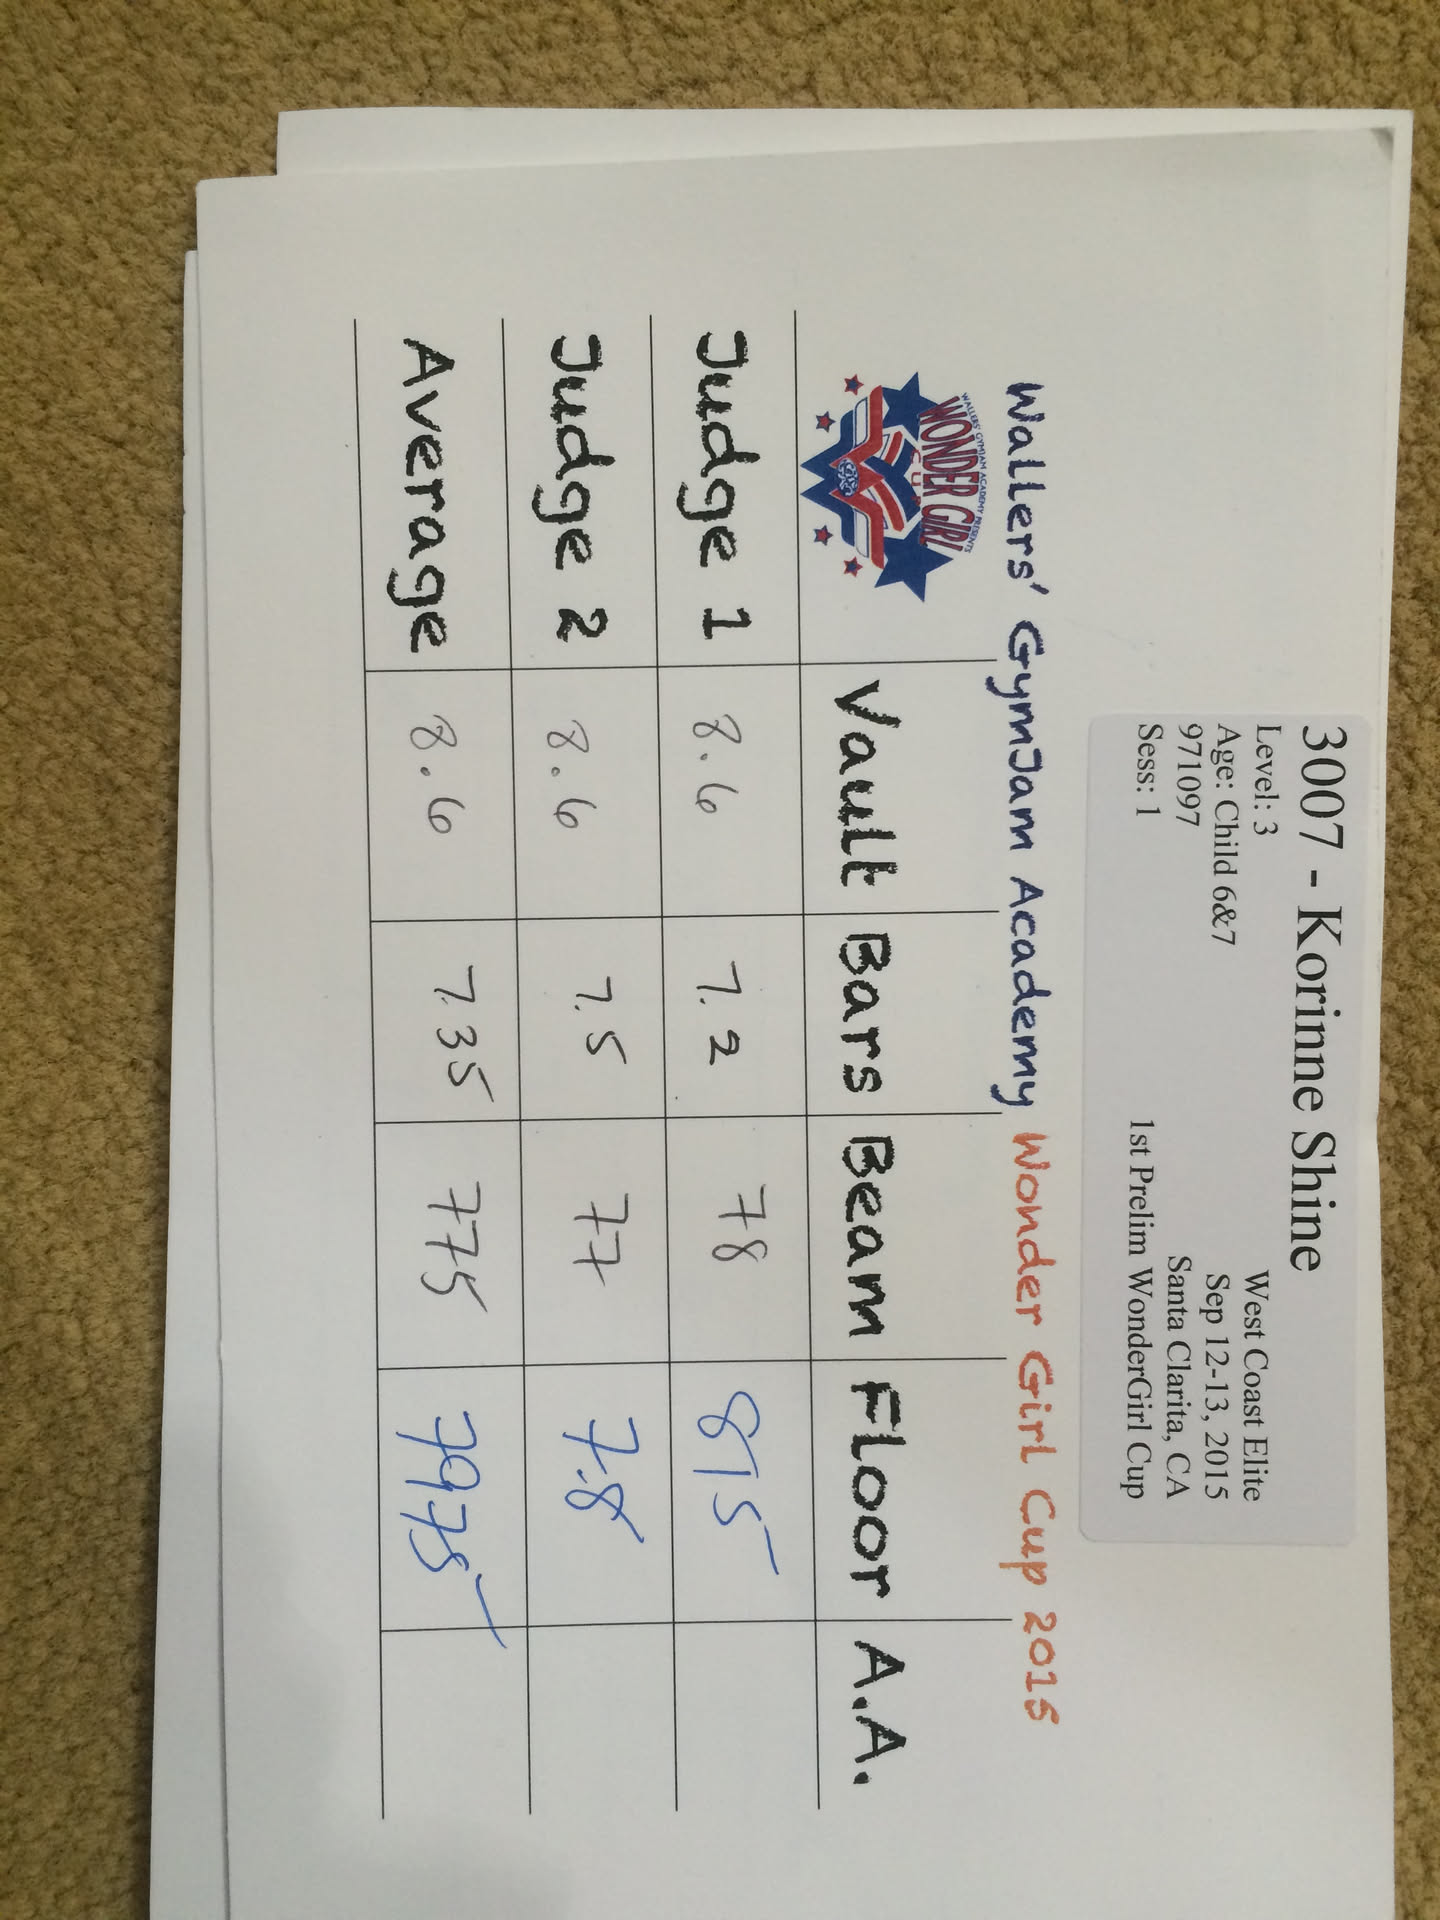 3007 - Korinne Shine
Level: 3 West Coast Elite
Age: Child 6&7 Sep 12-13, 2015
971097 Santa Clarita, CA
Sess: 1 1st Prelim WonderGirl Cup
Wallers' GymJam Academy Wonder Girl Cup 2015
WALLERS' GYMJAM ACADEMY PRESENTS
WONDER GIRL
CUP
Vault Bars Beam Floor A.A.
Judge 1 8.6 7.2 78 815
Judge 2 8.6 7.5 77 7.8
Average 8.6 7.35 775 7975